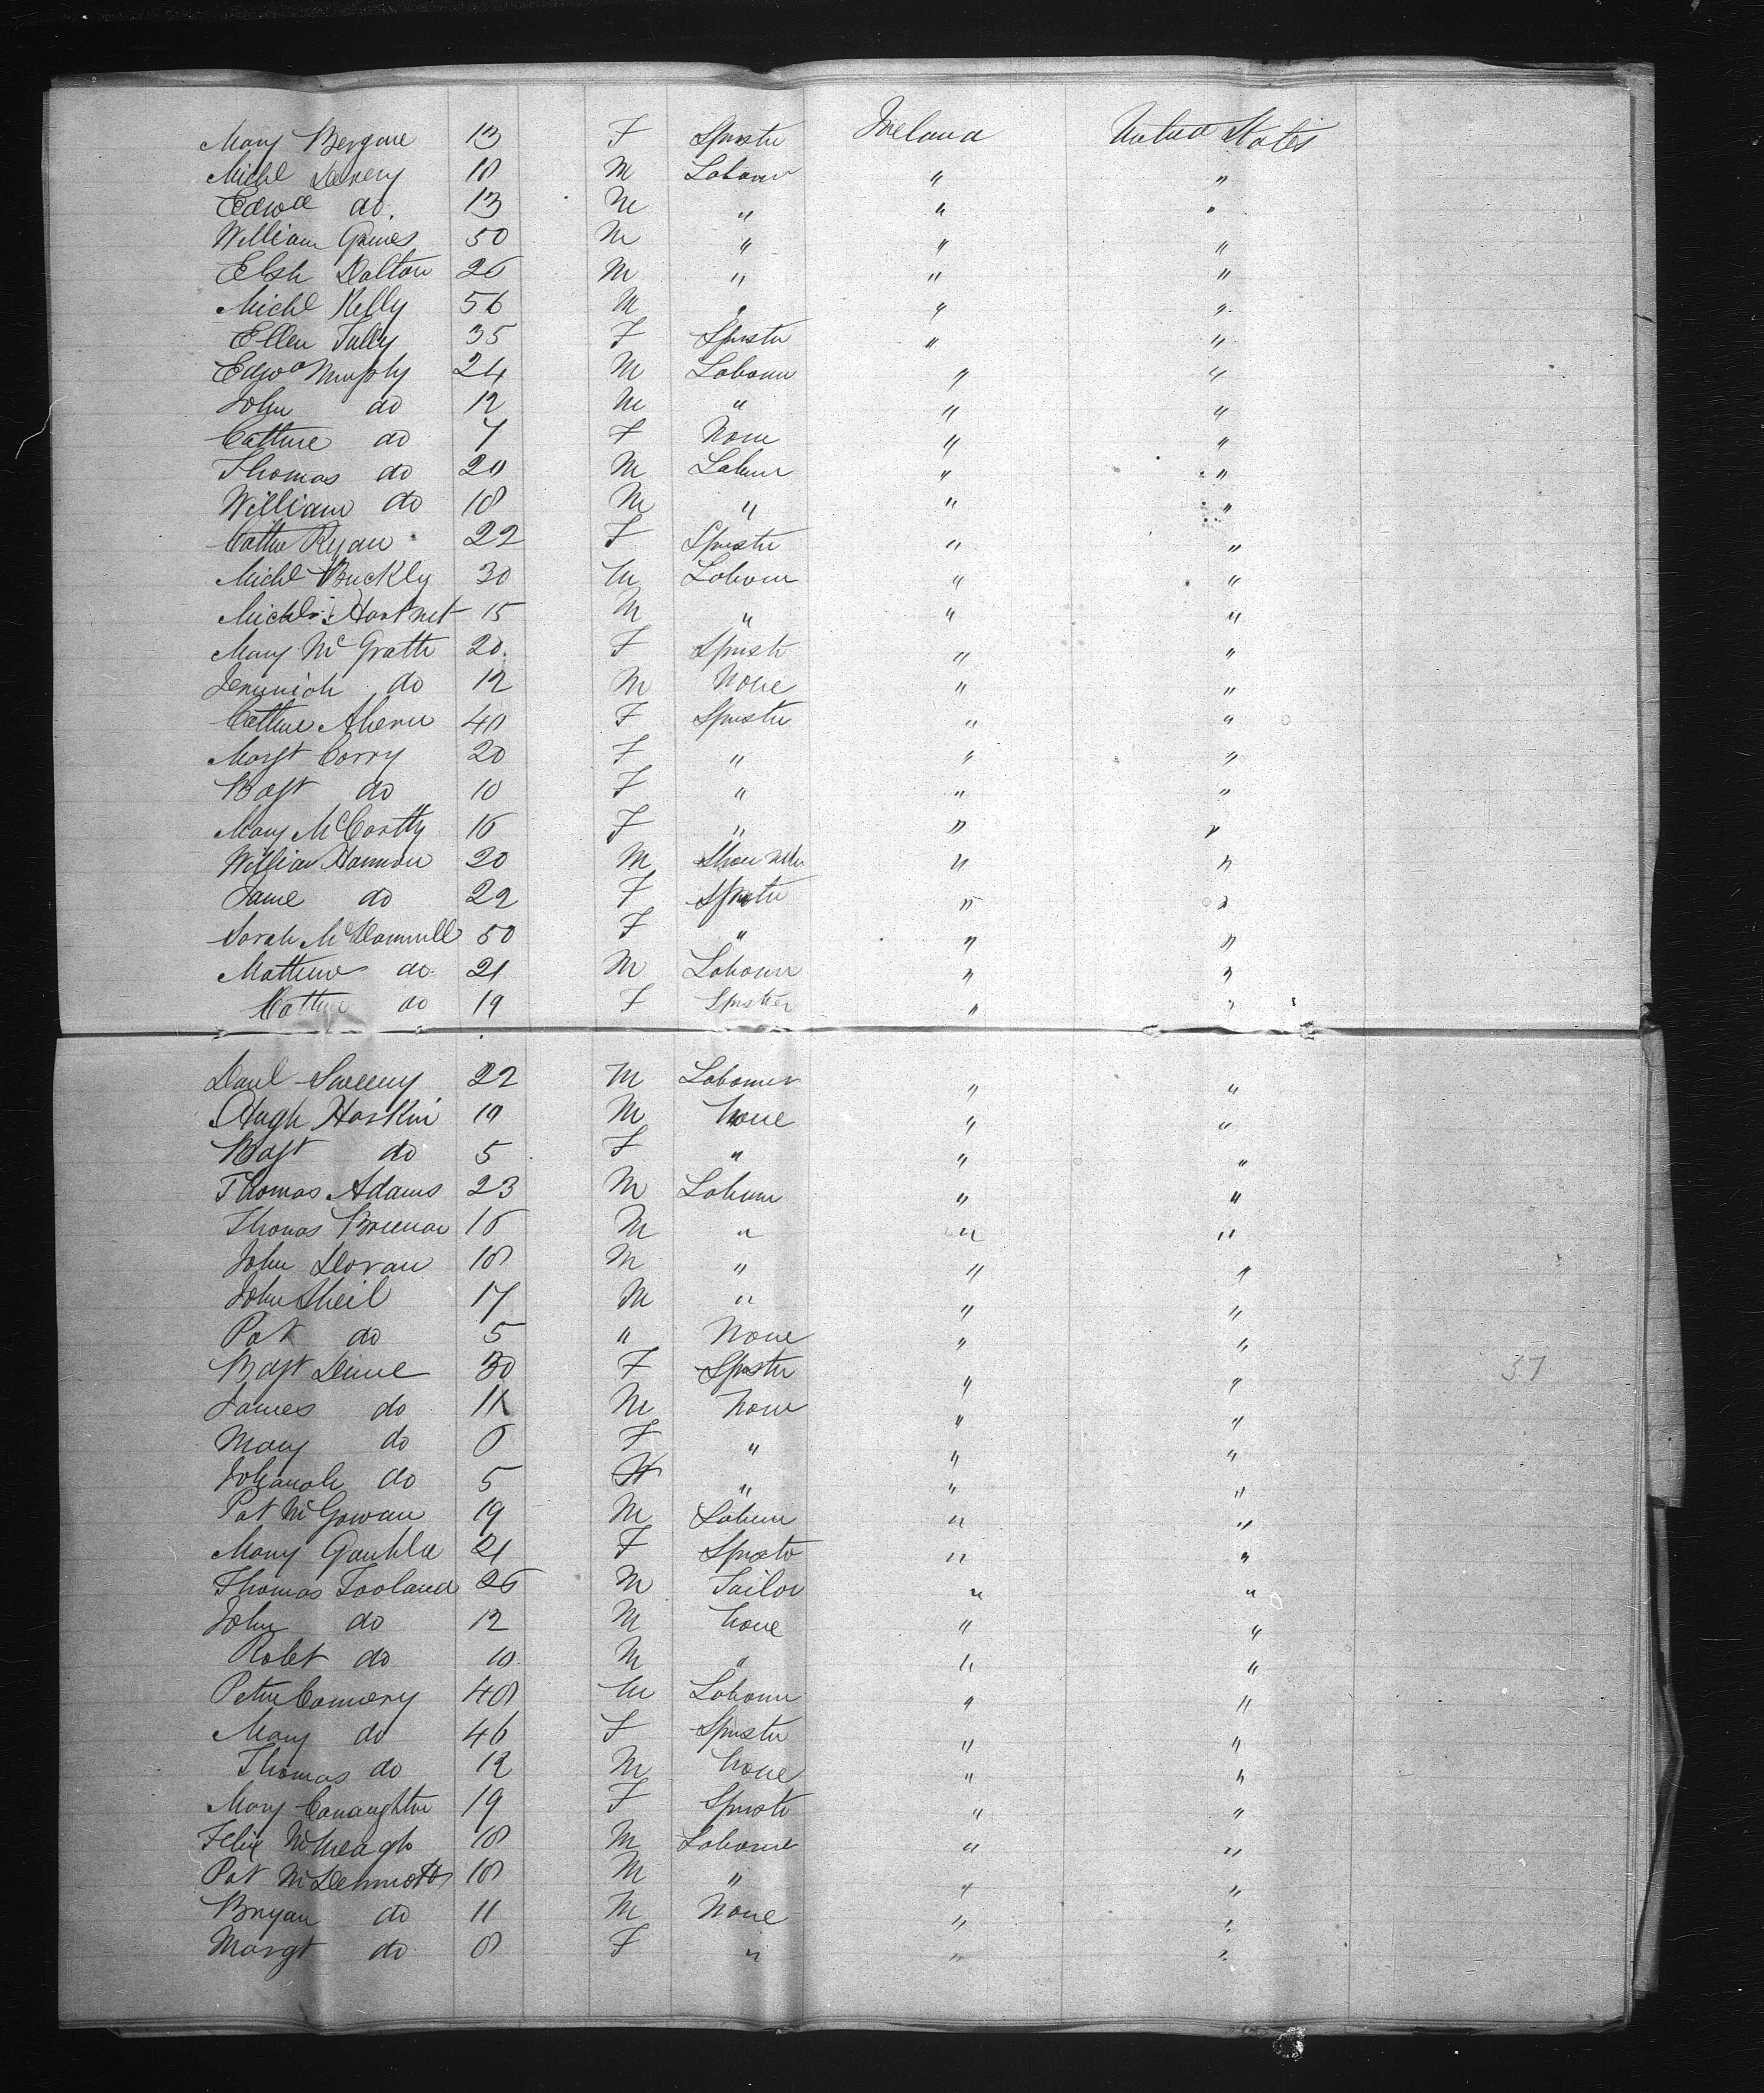 Mary Bergare 13 F Spinstr Ireland United States
Michl Devery 18 M Labour " "
Edwd do. 13 M " " "
William Grimes 50 M " " "
Elsh Dalton 26 M " " "
Michl Kelly 56 M " " "
Ellen Tully 35 F Spinstr " "
Edwd Murphy 24 M Labour " "
John do 12 M " " "
Cathne do 7 F None " "
Thomas do 20 M Labur " "
William do 18 M " " "
Cathne Ryan 22 F Spinstr " "
Michl Buckly 30 M Labour " "
Michl Hartnet 15 M " " "
Mary McGrath 20 F Spinstr " "
Jeremiah do 12 M None " "
Cathne Ahern 40 F Spinstr " "
Margt Corry 20 F " " "
Bdgt do 10 F " " "
Mary McCarthy 16 F " " "
William Hannon 20 M " "
Jane do 22 F Spinstr " "
Sarah McDonnell 50 F " " "
Mathew do 21 M Labour " "
Cathne do 19 F Spinster " "
Danl Sweeny 22 M Labourer " "
Hugh Harkin M None " "
Bdgt do 5 F " " "
Thomas Adams 23 M Labur " "
Thomas Brennan 16 M " " "
John Doran 18 M " " "
John Sheil 17 M " " "
Pat do 5 " None " "
Bdgt Dunne 30 F Spinstr " "
James do 11 M None " "
Mary do 8 F " " "
Johanah do 5 " " "
Pat McGowan 19 M Labur " "
Mary 21 F Spinstr " "
Thomas Tooland 26 M Tailor " "
John do 12 M None " "
Robt do 10 M " " "
Peter Connery 48 M Labour " "
Mary do 46 F Spinstr " "
Thomas do 12 M None " "
Mary Conaughton 19 F Spinstr " "
Felix 18 M Labourer " "
Pat McDermott 18 M " " "
Bryan do 11 M None " "
Margt do 8 F " " "
37